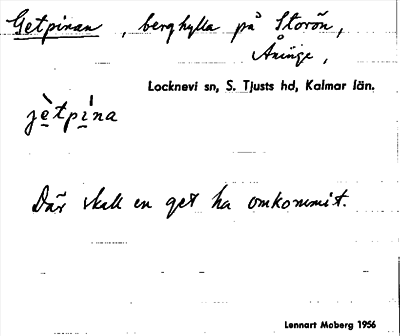 Getpinan, berghylla på Storön,
Åninge,
Locknevi sn, S. Tjusts hd, Kalmar län.
jè̱tpi̱na
Där skall en get ha omkommit.
Lennart Moberg 1956